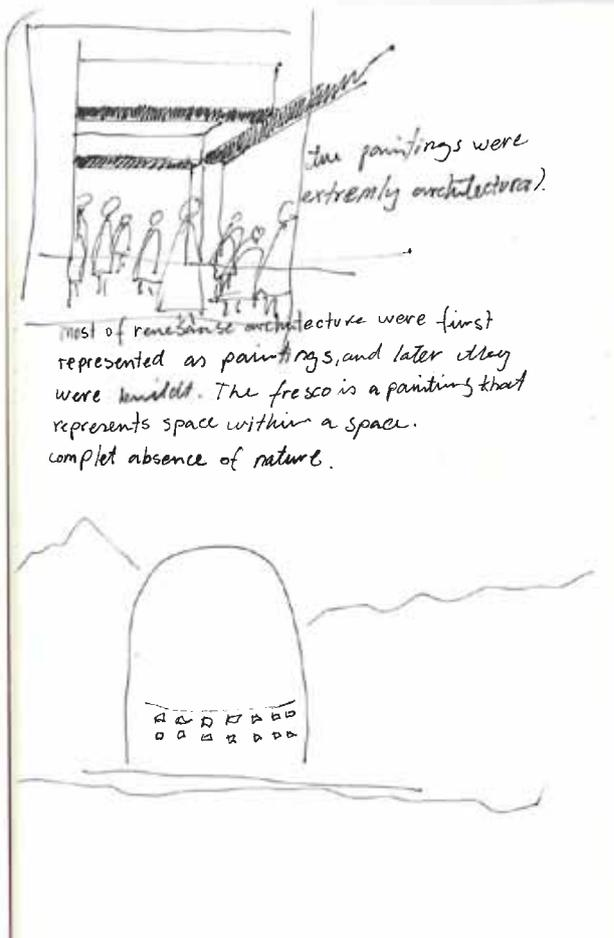 the paintings were
extremly architectural.
most of renesanse architecture were first
represented as paintings, and later they
were buildt. The fresco is a painting that
represents space within a space.
complet absence of nature.